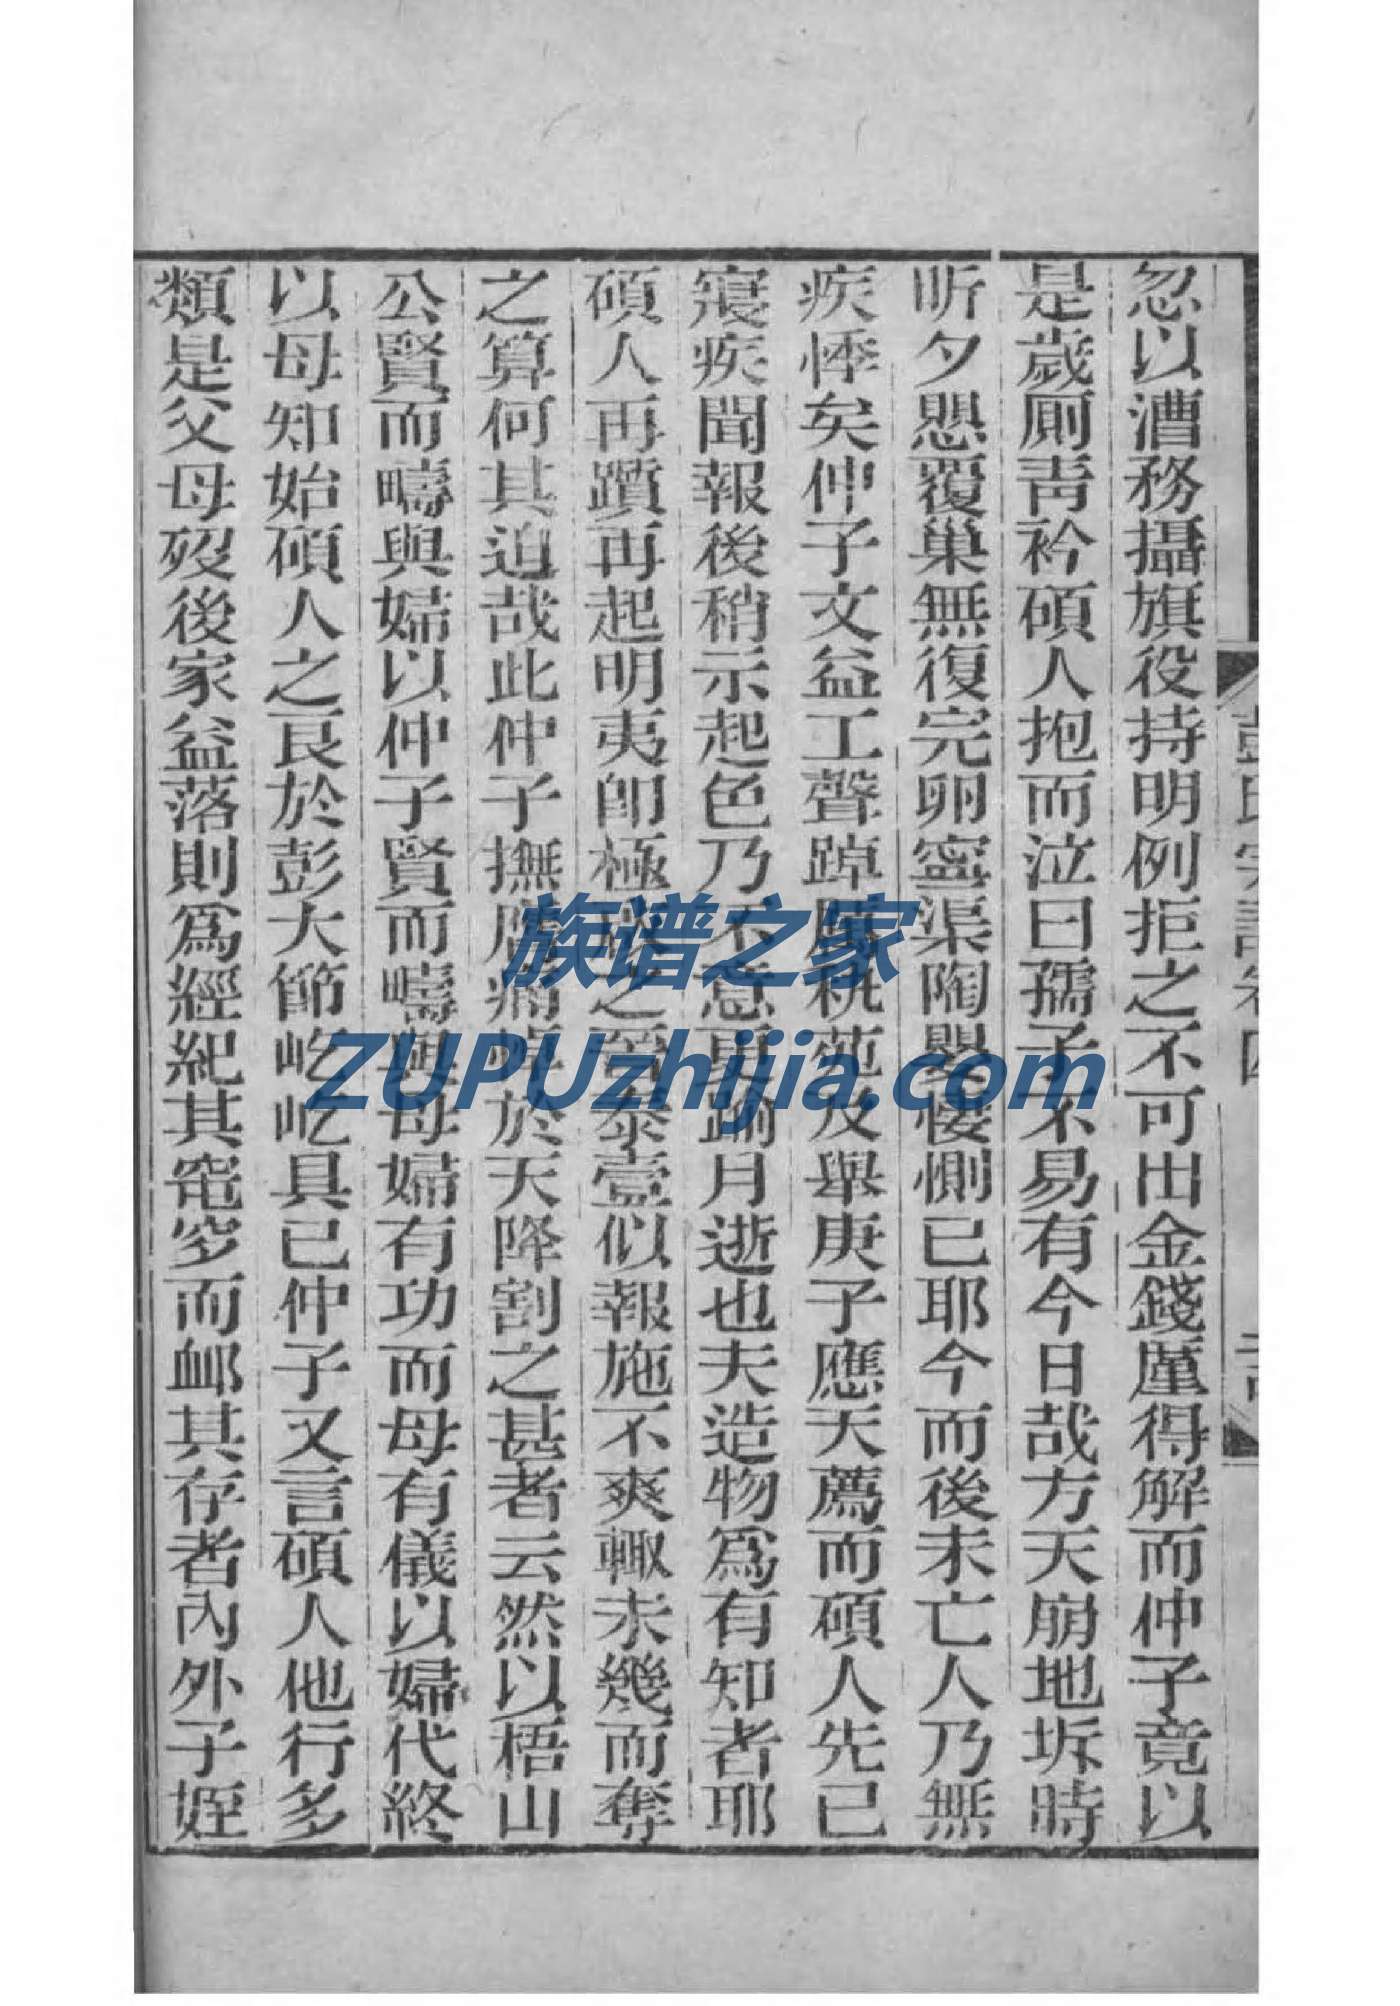 忽以漕務攝旗役持明例拒之不可出金錢厪得解而仲子竟以
是歲厠靑衿碩人抱而泣曰孺子不易有今日哉方天崩地坼時
昕夕思覆巢無復完卵寧渠陶嬰悽惻已耶今而後未亡人乃無
疾悸矣仲子文益工聲踔庚子應天薦而碩人先已
寢疾聞報後稍示起色乃不意更踰月逝也夫造物爲有知者耶
碩人再躓再起明夷卽極之泰壹似報施不爽輙未幾而奪
之算何其迫哉此仲子撫膺痛於天降割之甚者云然以梧山
公賢而疇與婦以仲子賢而疇與母婦有功而母有儀以婦代終
以母知始碩人之艮於彭大節屹屹具已仲子又言碩人他行多
類是父母歿後家益落則爲經紀其窀穸而卹其存者內外子姪
族谱之家
ZUPUzhijia.com